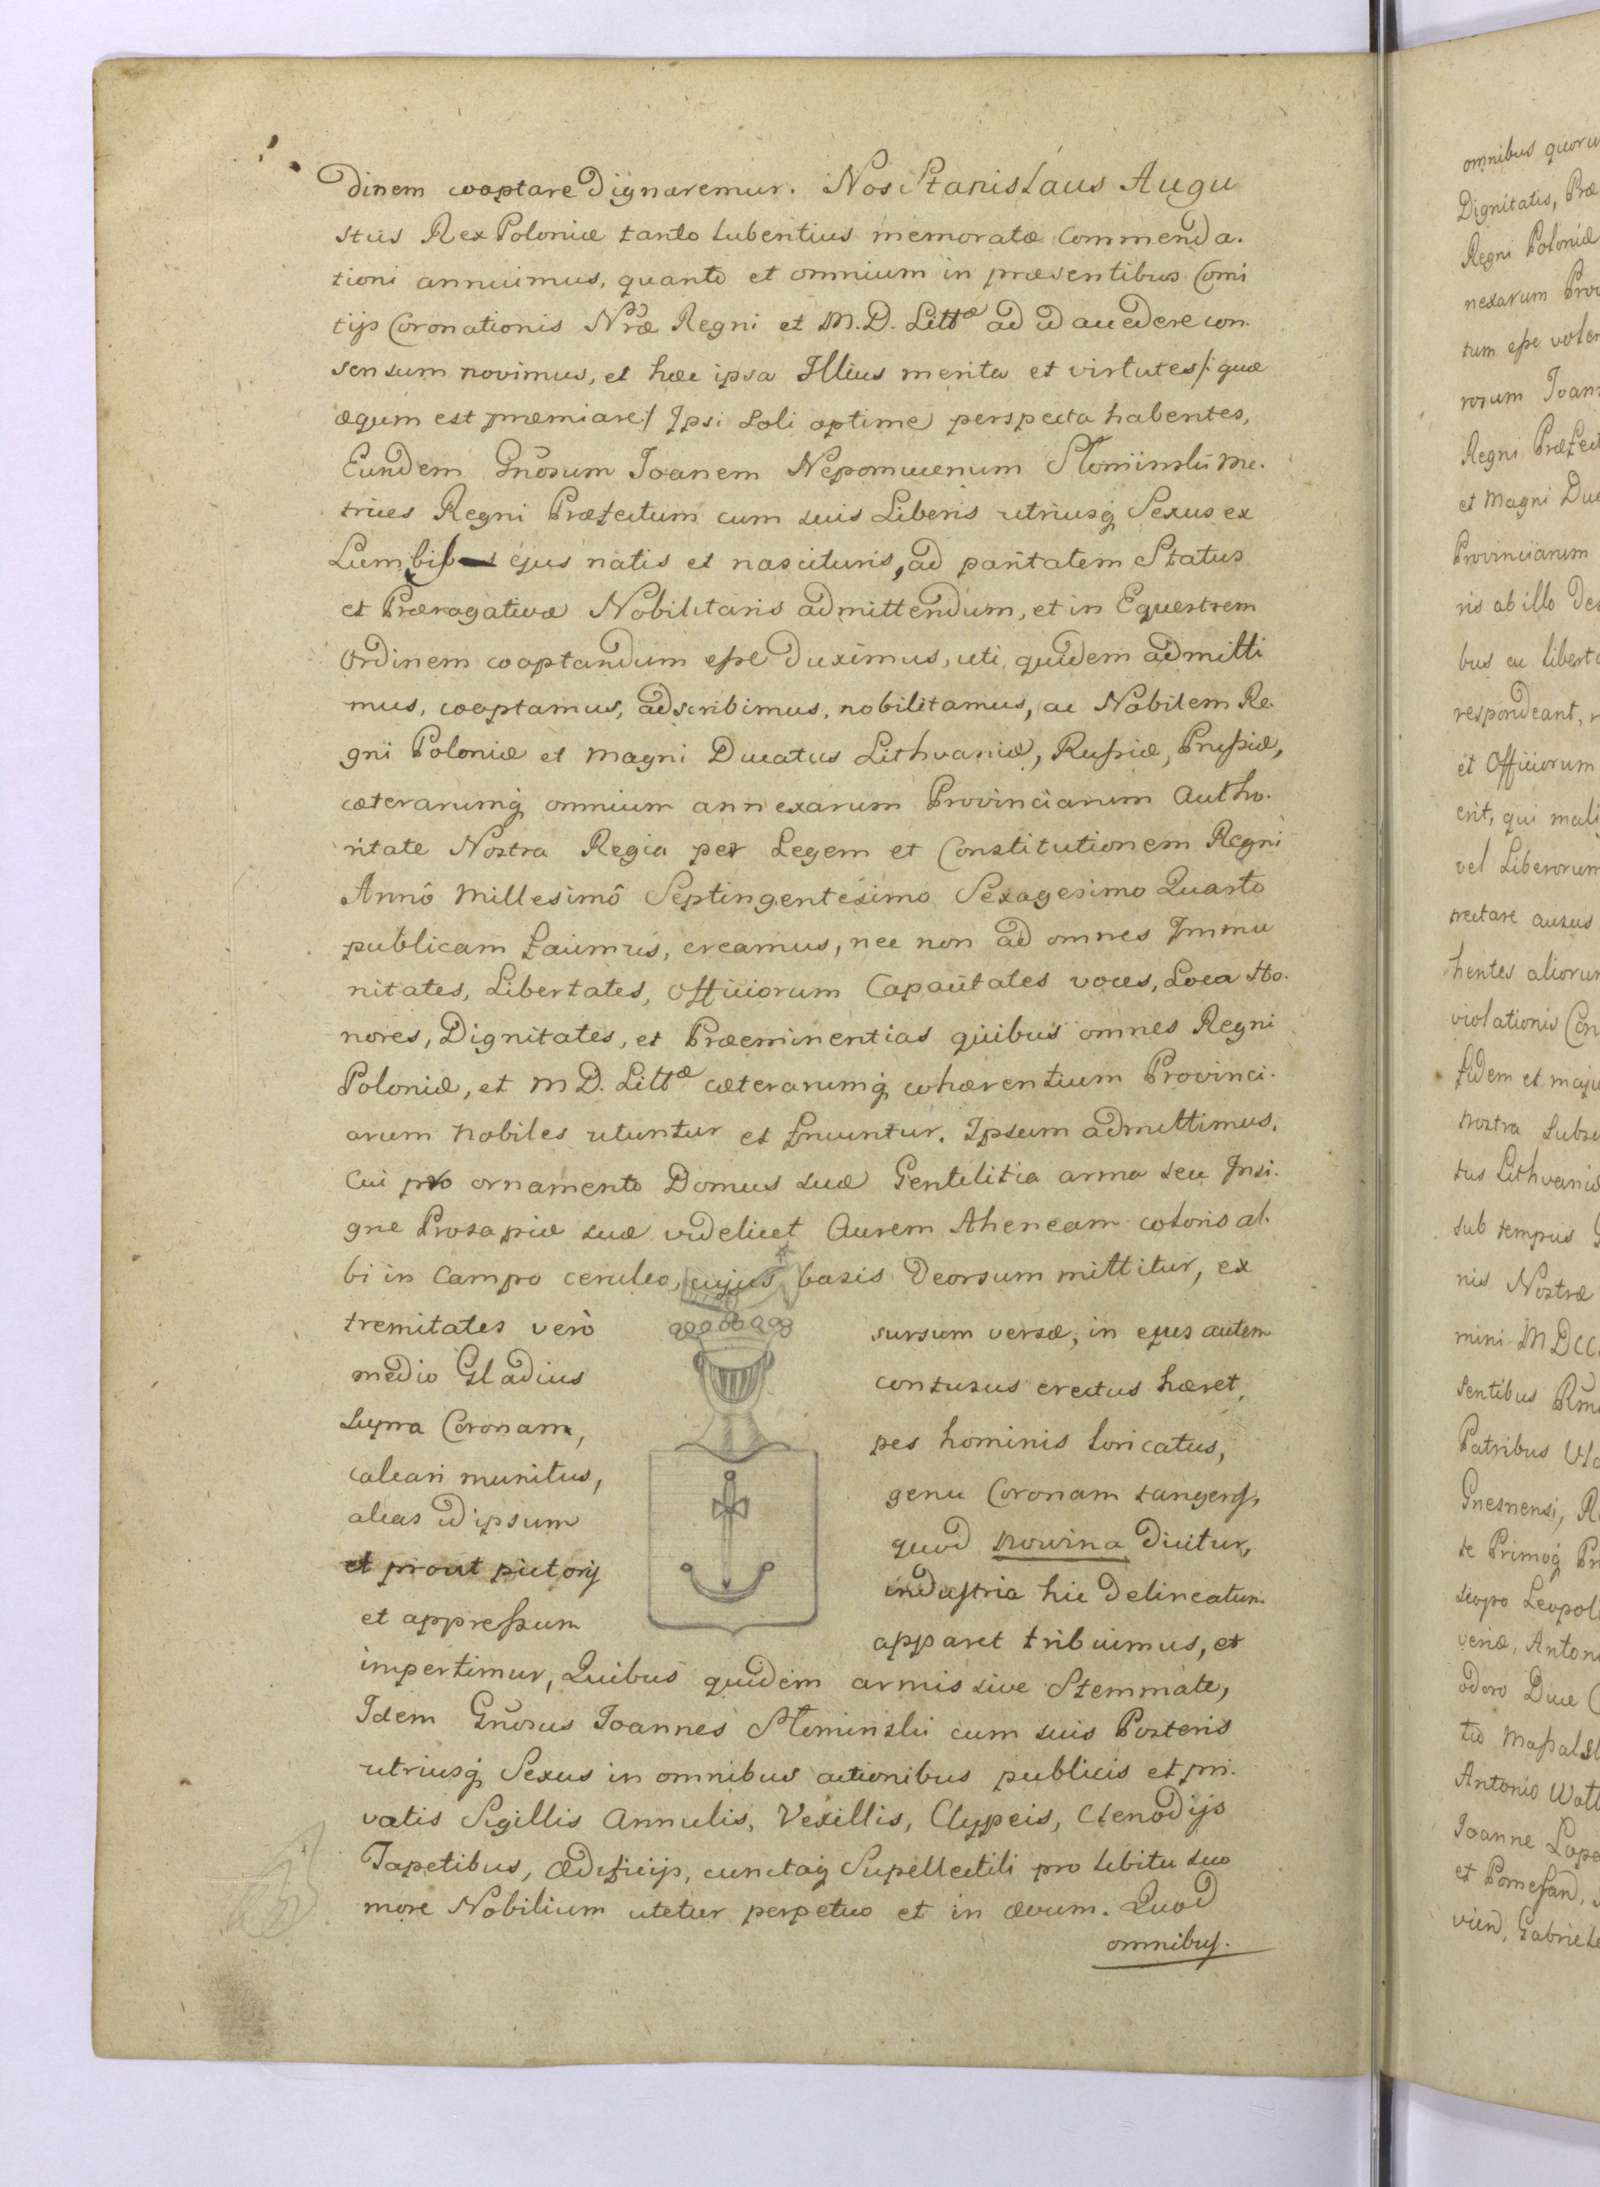 dinem cooptare Dignaremur. Nos Stanislaus Augu
stus Rex Poloniæ tanto lubentius memoratæ Commenda.
tioni annuimus, quanto et omnium in præsentibus Comi
tijs Coronationis Nræ Regni et M. D. Littæ ad id accedere con.
sensum novimus, et hæc ipsa Illius merita et virtutes /: quæ
æqum est præmiare / Ipsi soli optime perspecta habentes,
Eundem Gnosum Joanem Nepomucenum Słominski Me.
trices Regni Præfectum cum suis Liberis utriusq Sexus ex
Lumbis ejus natis et nascituris, ad paritatem Status
et Prærogativæ Nobilitaris admittendum, et in Equestrem
Ordinem cooptandum esse Duximus, uti quidem admitti
mus, cooptamus, adscribimus, nobilitamus, ac Nobilem Re.
gni Poloniæ et Magni Ducatus Lithvaniæ, Russiæ, Prussiæ,
cæterarumq omnium annexarum Provinciarum Autho.
ritate Nostra Regia per Legem et Constitutionem Regni
Annô Millesimô Septingentesimo Sexagesimo Quarto
publicam facimus, creamus, nec non ad omnes Immu
nitates, Libertates, Officiorum Capacitates voces, Loca Ho.
nores, Dignitates, et Præeminentias quibus omnes Regni
Poloniæ, et M D. Littæ cæterarumq cohærentium Provinci.
arum Nobiles utuntur et fruuntur. Ipsum admittimus.
Cui pro ornamento Domus suæ Gentilitia arma seu Insi.
gne Prosapiæ suæ videlicet Aurem Aheneam coloris al.
bi in Campo ceruleo, cujus basis Deorsum mittitur, ex
tremitates verò sursum versæ, in ejus autem
medio Gladius contusus erectus hæret,
supra Coronam, pes hominis loricatus,
calcari munitus, genu Coronam tangens,
aleas id ipsum quod Nowina Dicitur,
et prout pictorij industria hic Delineatum
et appressum apparet tribuimus, et
impertimur, Quibus quidem armis sive Stemmate,
Idem Gnosus Joannes Słominski cum suis Posteris
utriusq Sexus in omnibus actionibus publicis et pri.
vatis Sigillis Annulis, Vexillis, Clypeis, Clenodijs
Tapetibus, Ædificijs, cunctaq Supellectili pro libitu suo
more Nobilium utetur perpetuo et in ævum. Quod
omnibus.
omnibus
Dignitatis, Præ
Regni Poloniæ
nexarum
tum esse
Regni
et Magni
Provinciarum
ris ab illo
bus ea
respondeant,
et Officiorum
erit, qui
vel Liberorum
ausus
violationis
fidem et
Nostra
tus Lithvaniæ
sub tempus
nis Nostræ
mini
sentibus
Patribus
Gnesnensi,
te
Antonio
Joanne
et